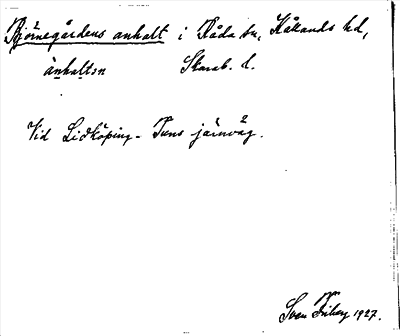 Björnegårdens anhalt i Råda sn, Kållands hd,
ànhaltǝn Skarab. l.
Vid Lidköping - Tuns järnväg.
Sven 1927.